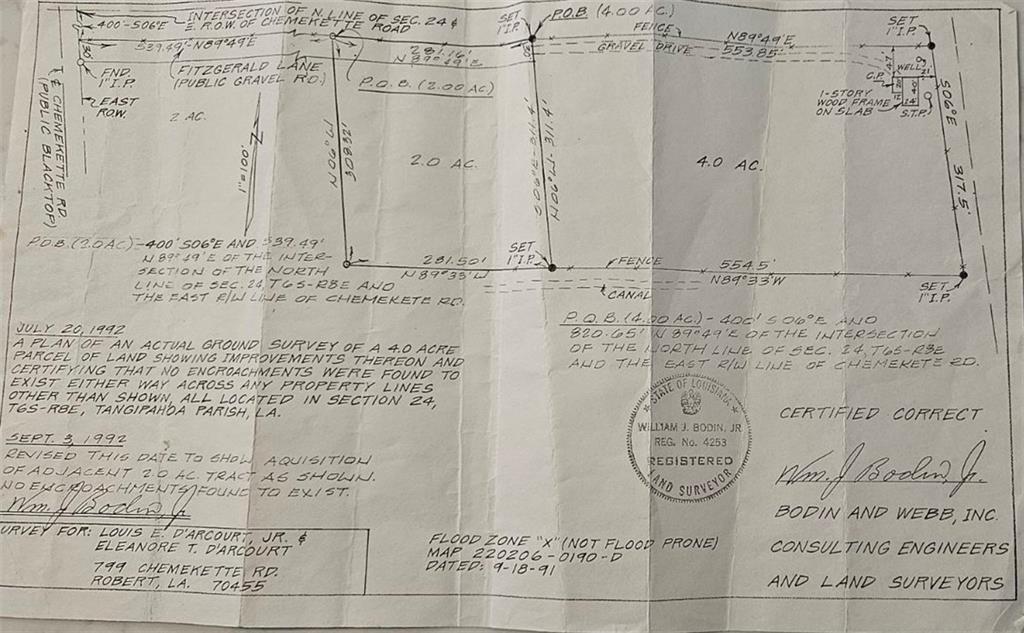 INTERSECTION OF N. LINE OF SEC. 24 &
E. R.O.W. OF CHEMEKETTE ROAD
400'-S06°E
539.49'-N89°49'E
30'
FND.
1" I.P.
FITZGERALD LANE
(PUBLIC GRAVEL RD.)
EAST
R.O.W.
2 AC.
1"=100'
℄ CHEMEKETTE RD.
(PUBLIC BLACKTOP)
281.16'
N89°49'E
P.O.B. (2.00 AC.)
SET
1" I.P.
P.O.B. (4.00 AC.)
30'
FENCE
GRAVEL DRIVE
N89°49'E
553.85'
SET
1" I.P.
WELL
47
21
C.P.
1-STORY
WOOD FRAME
ON SLAB
12
20
40
24
S.T.P.
S06°E
317.5'
2.0 AC.
4.0 AC.
281.50'
N89°33'W
SET
1" I.P.
FENCE
CANAL
554.5'
N89°33'W
SET
1" I.P.
P.O.B. (2.0 AC) - 400' S06°E AND 539.49'
N89°49'E OF THE INTER-
SECTION OF THE NORTH
LINE OF SEC. 24, T6S-R8E AND
THE EAST R/W LINE OF CHEMEKETE RD.
P.O.B. (4.00 AC.) - 400' S06°E AND
820.65' N89°49'E OF THE INTERSECTION
OF THE NORTH LINE OF SEC. 24, T6S-R8E
AND THE EAST R/W LINE OF CHEMEKETE RD.
JULY 20, 1992
A PLAN OF AN ACTUAL GROUND SURVEY OF A 4.0 ACRE
PARCEL OF LAND SHOWING IMPROVEMENTS THEREON AND
CERTIFYING THAT NO ENCROACHMENTS WERE FOUND TO
EXIST EITHER WAY ACROSS ANY PROPERTY LINES
OTHER THAN SHOWN, ALL LOCATED IN SECTION 24,
T6S-R8E, TANGIPAHOA PARISH, LA.
SEPT. 3, 1992
REVISED THIS DATE TO SHOW AQUISITION
OF ADJACENT 2.0 AC. TRACT AS SHOWN.
NO ENCROACHMENTS FOUND TO EXIST.
Wm. J Bodin, Jr
SURVEY FOR: LOUIS E. D'ARCOURT, JR. &
ELEANORE T. D'ARCOURT
799 CHEMEKETTE RD.
ROBERT, LA. 70455
STATE OF LOUISIANA
WILLIAM J. BODIN, JR
REG. No. 4253
REGISTERED
LAND SURVEYOR
FLOOD ZONE "X" (NOT FLOOD PRONE)
MAP 220206-0190-D
DATED: 9-18-91
CERTIFIED CORRECT
Wm. J Bodin, Jr.
BODIN AND WEBB, INC.
CONSULTING ENGINEERS
AND LAND SURVEYORS